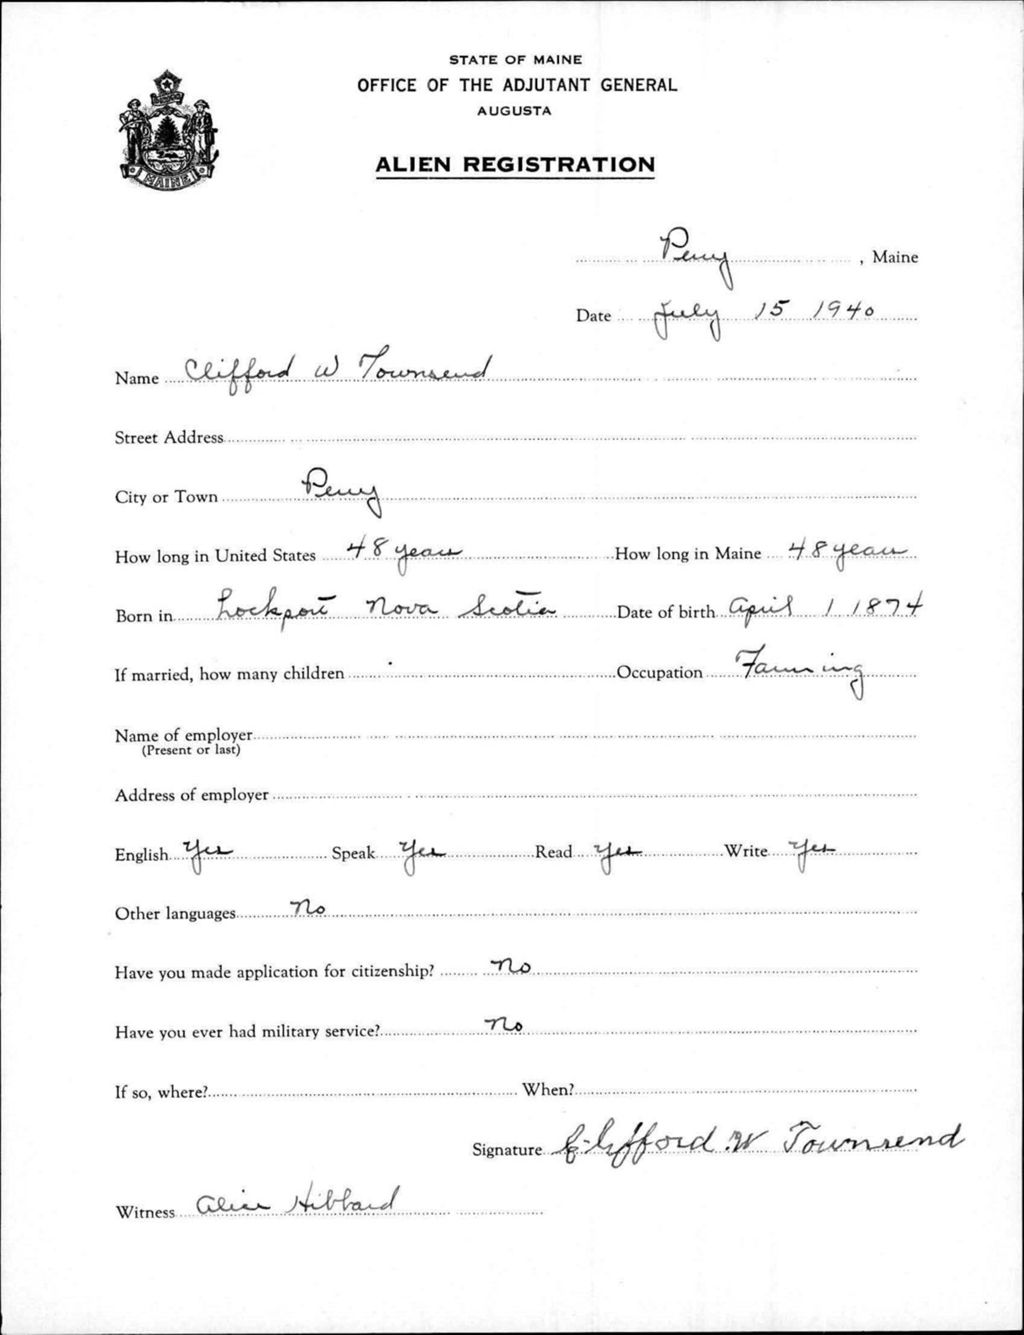 STATE OF MAINE
OFFICE OF THE ADJUTANT GENERAL
AUGUSTA
ALIEN REGISTRATION
MAINE
Perry, Maine
Date July 15 1940
Name Clifford W Townsend
Street Address
City or Town Perry
How long in United States 48 years How long in Maine 48 years
Born in Lockport Nova Scotia Date of birth April 1 1874
If married, how many children Occupation Farming
Name of employer
(Present or last)
Address of employer
English Yes Speak Yes Read Yes Write Yes
Other languages No
Have you made application for citizenship? No
Have you ever had military service? No
If so, where? When?
Signature Clifford W Townsend
Witness Alice Hibbard